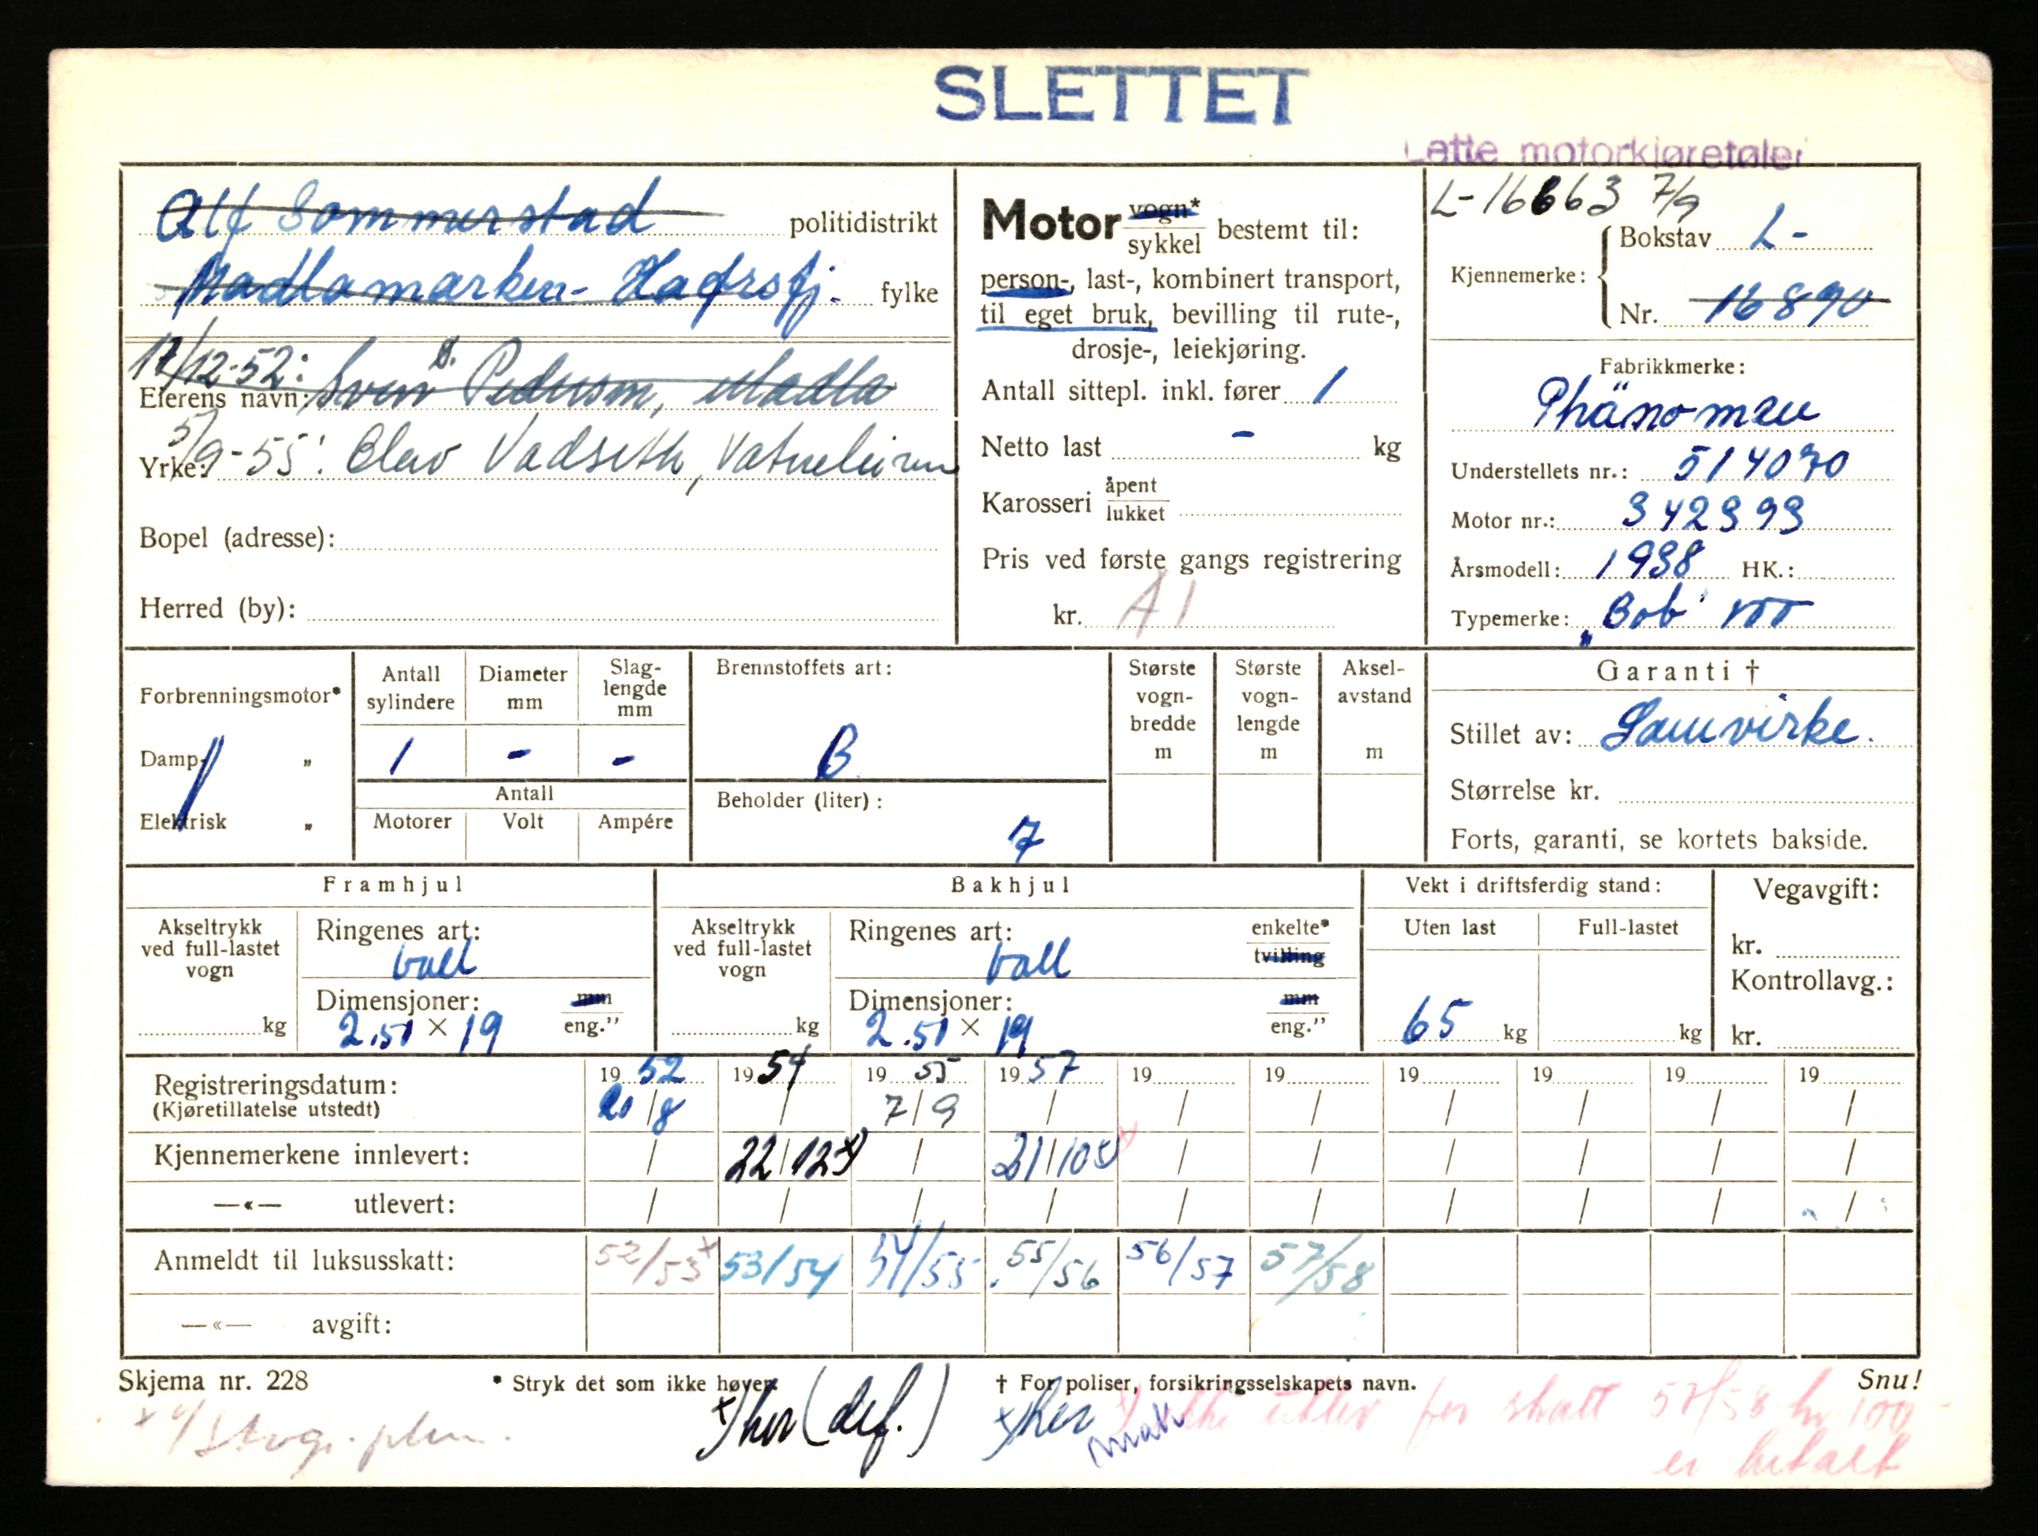 SLETTET
Lette motorkjøretøier
Alf Sommerstad politidistrikt
Madlamarken - Hafrsfj. fylke
17/12-52: Sven S. Pedersen, Madla
Eierens navn:
5/9-55: Olav Vadseth, Vatneleiren
Yrke:
Bopel (adresse):
Herred (by):
Motor vogn* sykkel bestemt til:
person-, last-, kombinert transport,
til eget bruk, bevilling til rute-,
drosje-, leiekjøring.
Antall sittepl. inkl. fører 1
Netto last - kg
Karosseri åpent lukket
Pris ved første gangs registrering
kr. A1
L-16663 7/9
Kjennemerke: Bokstav L-
Nr. 16890
Fabrikkmerke:
Phänomen
Understellets nr.: 514070
Motor nr.: 342393
Årsmodell: 1938 HK.:
Typemerke: "Bob" 100
Forbrenningsmotor*
Damp- „
Elektrisk „
Antall sylindere Diameter mm Slag-lengde mm
1 - -
Antall
Motorer Volt Ampére
Brennstoffets art:
B
Beholder (liter):
7
Største vogn-bredde m
Største vogn-lengde m
Aksel-avstand m
Garanti †
Stillet av: Samvirke.
Størrelse kr.
Forts, garanti, se kortets bakside.
Framhjul
Akseltrykk ved full-lastet vogn
kg
Ringenes art:
ball
Dimensjoner: mm eng."
2.50 × 19
Bakhjul
Akseltrykk ved full-lastet vogn
kg
Ringenes art: enkelte* tvilling
ball
Dimensjoner: mm eng."
2.50 × 19
Vekt i driftsferdig stand:
Uten last Full-lastet
65 kg kg
Vegavgift:
kr.
Kontrollavg.:
kr.
Registreringsdatum: 1952 1954 1955 1957 19 19 19 19 19 19
(Kjøretillatelse utstedt) 20/8 / 7/9 / / / / / / /
Kjennemerkene innlevert: / 22/12 x) / 21/10 x) / / / / / /
—«— utlevert: / / / / / / / / / /
Anmeldt til luksusskatt: 52/53 x 53/54 54/55 55/56 56/57 57/58
—«— avgift:
Skjema nr. 228 * Stryk det som ikke høver. † For poliser, forsikringsselskapets navn. Snu!
x) her (def.) x) her
for skatt 57/58 kr 100-
er betalt